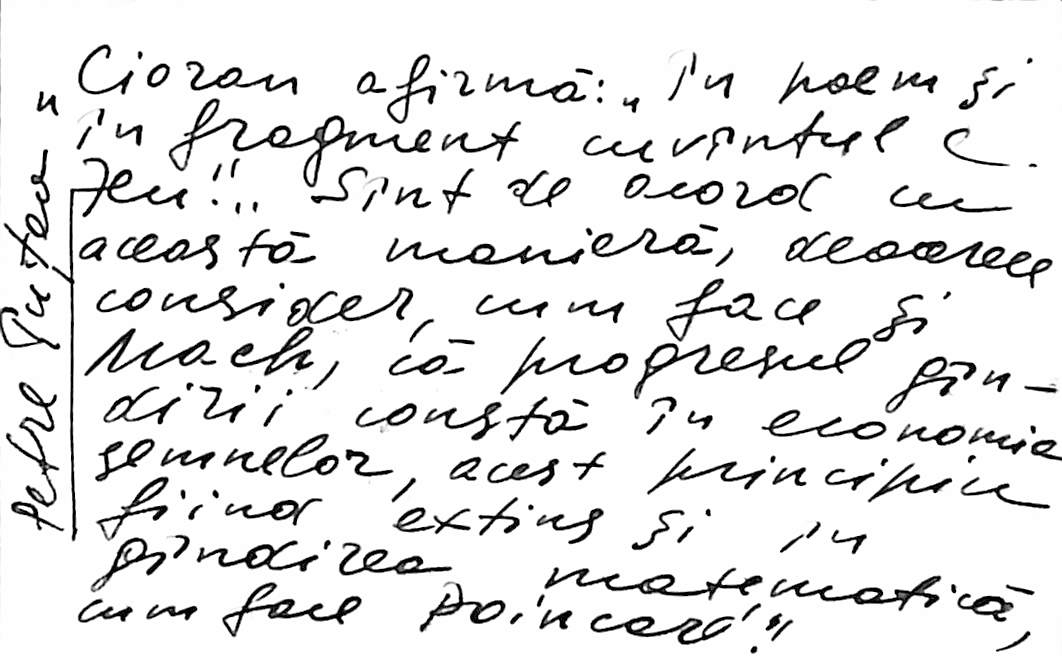 „Cioran afirmă: „În poem și
în fragment cuvîntul e.
Zeu!". Sînt de acord cu
această manieră, deoarece
consider, cum face și
Mach, că progresul gîn-
dirii constă în economia
semnelor, acest principiu
fiind extins și în
gîndirea matematică,
cum face Poincaré!"
Petre Țuțea